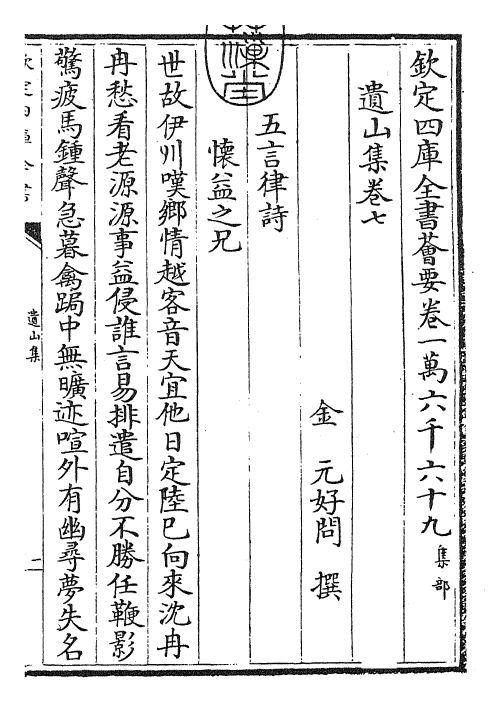 欽定四庫全書薈要卷一萬六千六十九集部
遺山集卷七
金 元好問 撰
五言律詩
懷益之兄
世故伊川嘆鄉情越客音天宜他日定陸已向來沈冉
冉愁看老源源事益侵誰言易排遣自分不勝任鞭影
驚疲馬鍾聲急暮禽跼中無曠迹喧外有幽尋夢失名
遺山集